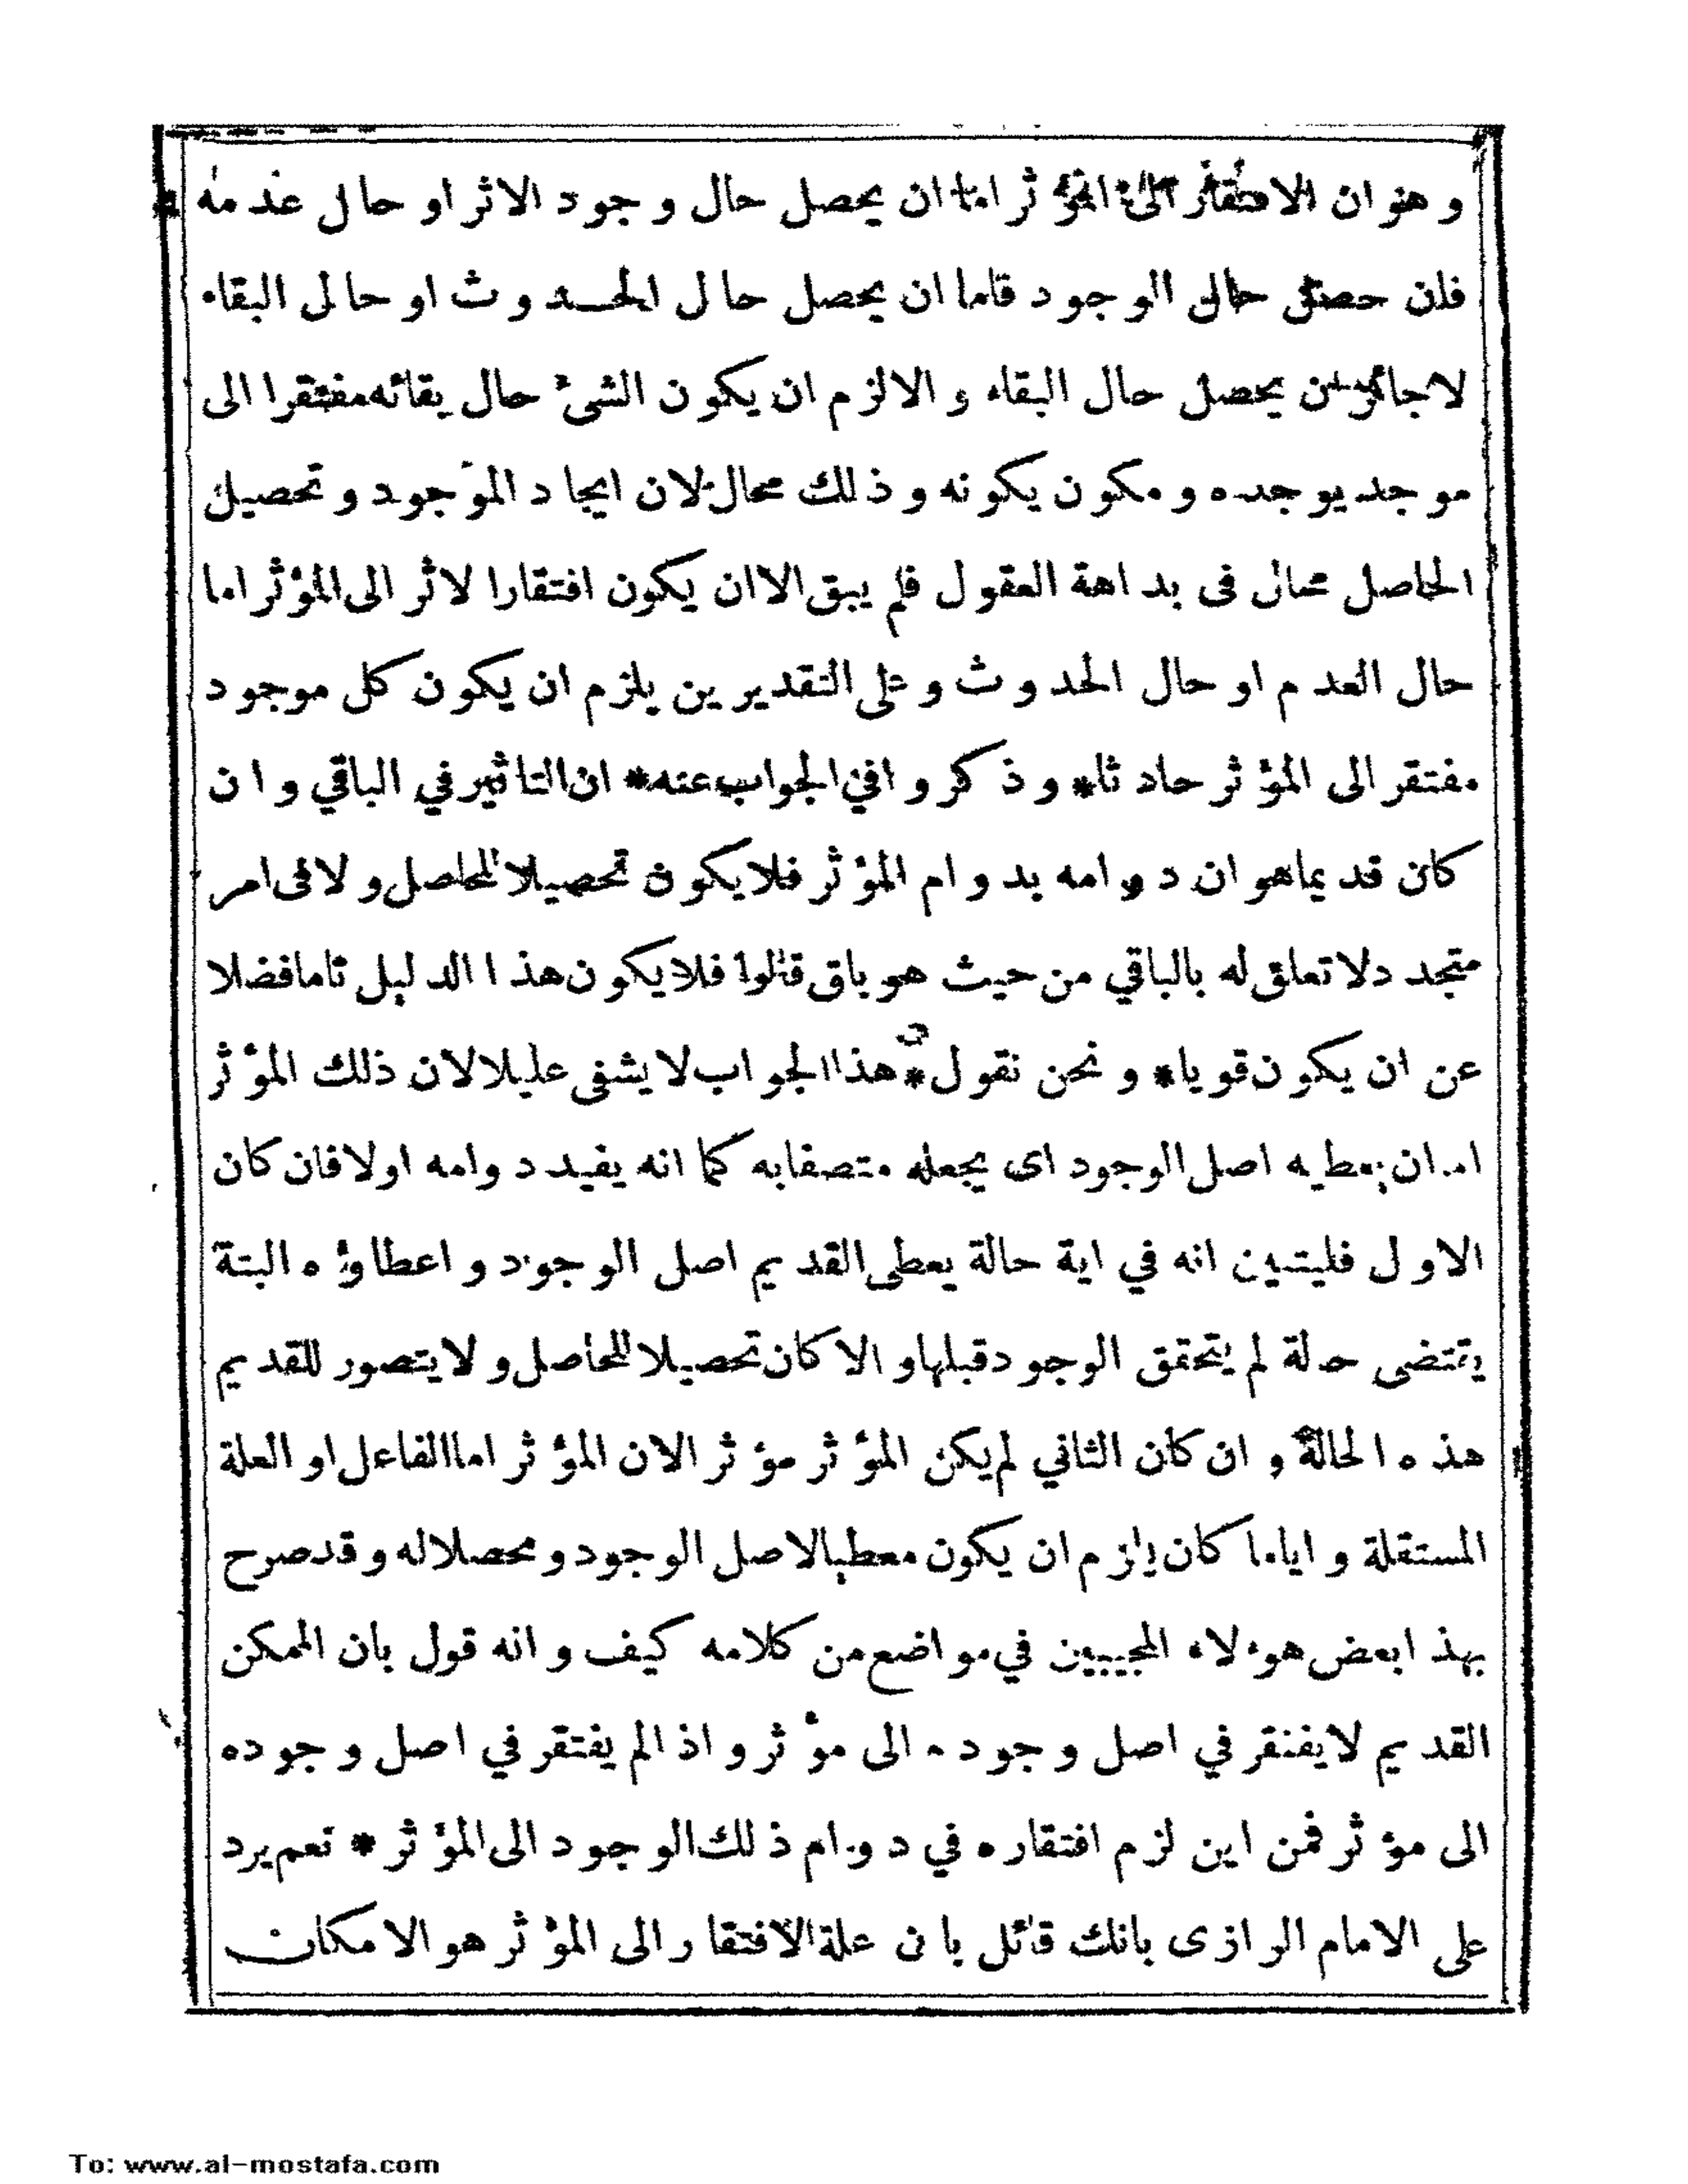 و هو ان الافتقار الى المؤثر اما ان يحصل حال وجود الاثر او حال عدمه
فان حصل حال الوجود فاما ان يحصل حال الحدوث او حال البقاء
لا جائز ان يحصل حال البقاء و الا لزم ان يكون الشئ حال بقائه مفتقرا الى
موجد يوجده و مكون يكونه و ذلك محال لان ايجاد الموجود و تحصيل
الحاصل محال فى بداهة العقول فلم يبق الا ان يكون افتقار الاثر الى المؤثر اما
حال العدم او حال الحدوث و على التقديرين يلزم ان يكون كل موجود
مفتقر الى المؤثر حادثا * و ذكروا في الجواب عنه * ان التاثير في الباقي و ان
كان قديما هو ان دوامه بدوام المؤثر فلا يكون تحصيلا للحاصل و لا فى امر
متجدد لا تعلق له بالباقي من حيث هو باق قالوا فلا يكون هذا الدليل تاما فضلا
عن ان يكون قويا * و نحن نقول * هذا الجواب لا يشفى عليلا لان ذلك المؤثر
اما ان يعطيه اصل الوجود اى يجعله متصفا به كما انه يفيد دوامه او لا فان كان
الاول فليتبين انه في اية حالة يعطى القديم اصل الوجود و اعطاؤه البتة
يقتضى حالة لم يتحقق الوجود قبلها و الا كان تحصيلا للحاصل و لا يتصور للقديم
هذه الحالة و ان كان الثاني لم يكن المؤثر مؤثرا لان المؤثر اما الفاعل او العلة
المستقلة و اياما كان يلزم ان يكون معطيا لاصل الوجود و محصلا له و قد صرح
بهذا بعض هؤلاء المجيبين في مواضع من كلامه كيف و انه قول بان الممكن
القديم لا يفتقر في اصل وجوده الى مؤثر و اذا لم يفتقر في اصل وجوده
الى مؤثر فمن اين لزم افتقاره في دوام ذلك الوجود الى المؤثر * نعم يرد
على الامام الرازى بانك قائل بان علة الافتقار الى المؤثر هو الامكان
To: www.al-mostafa.com